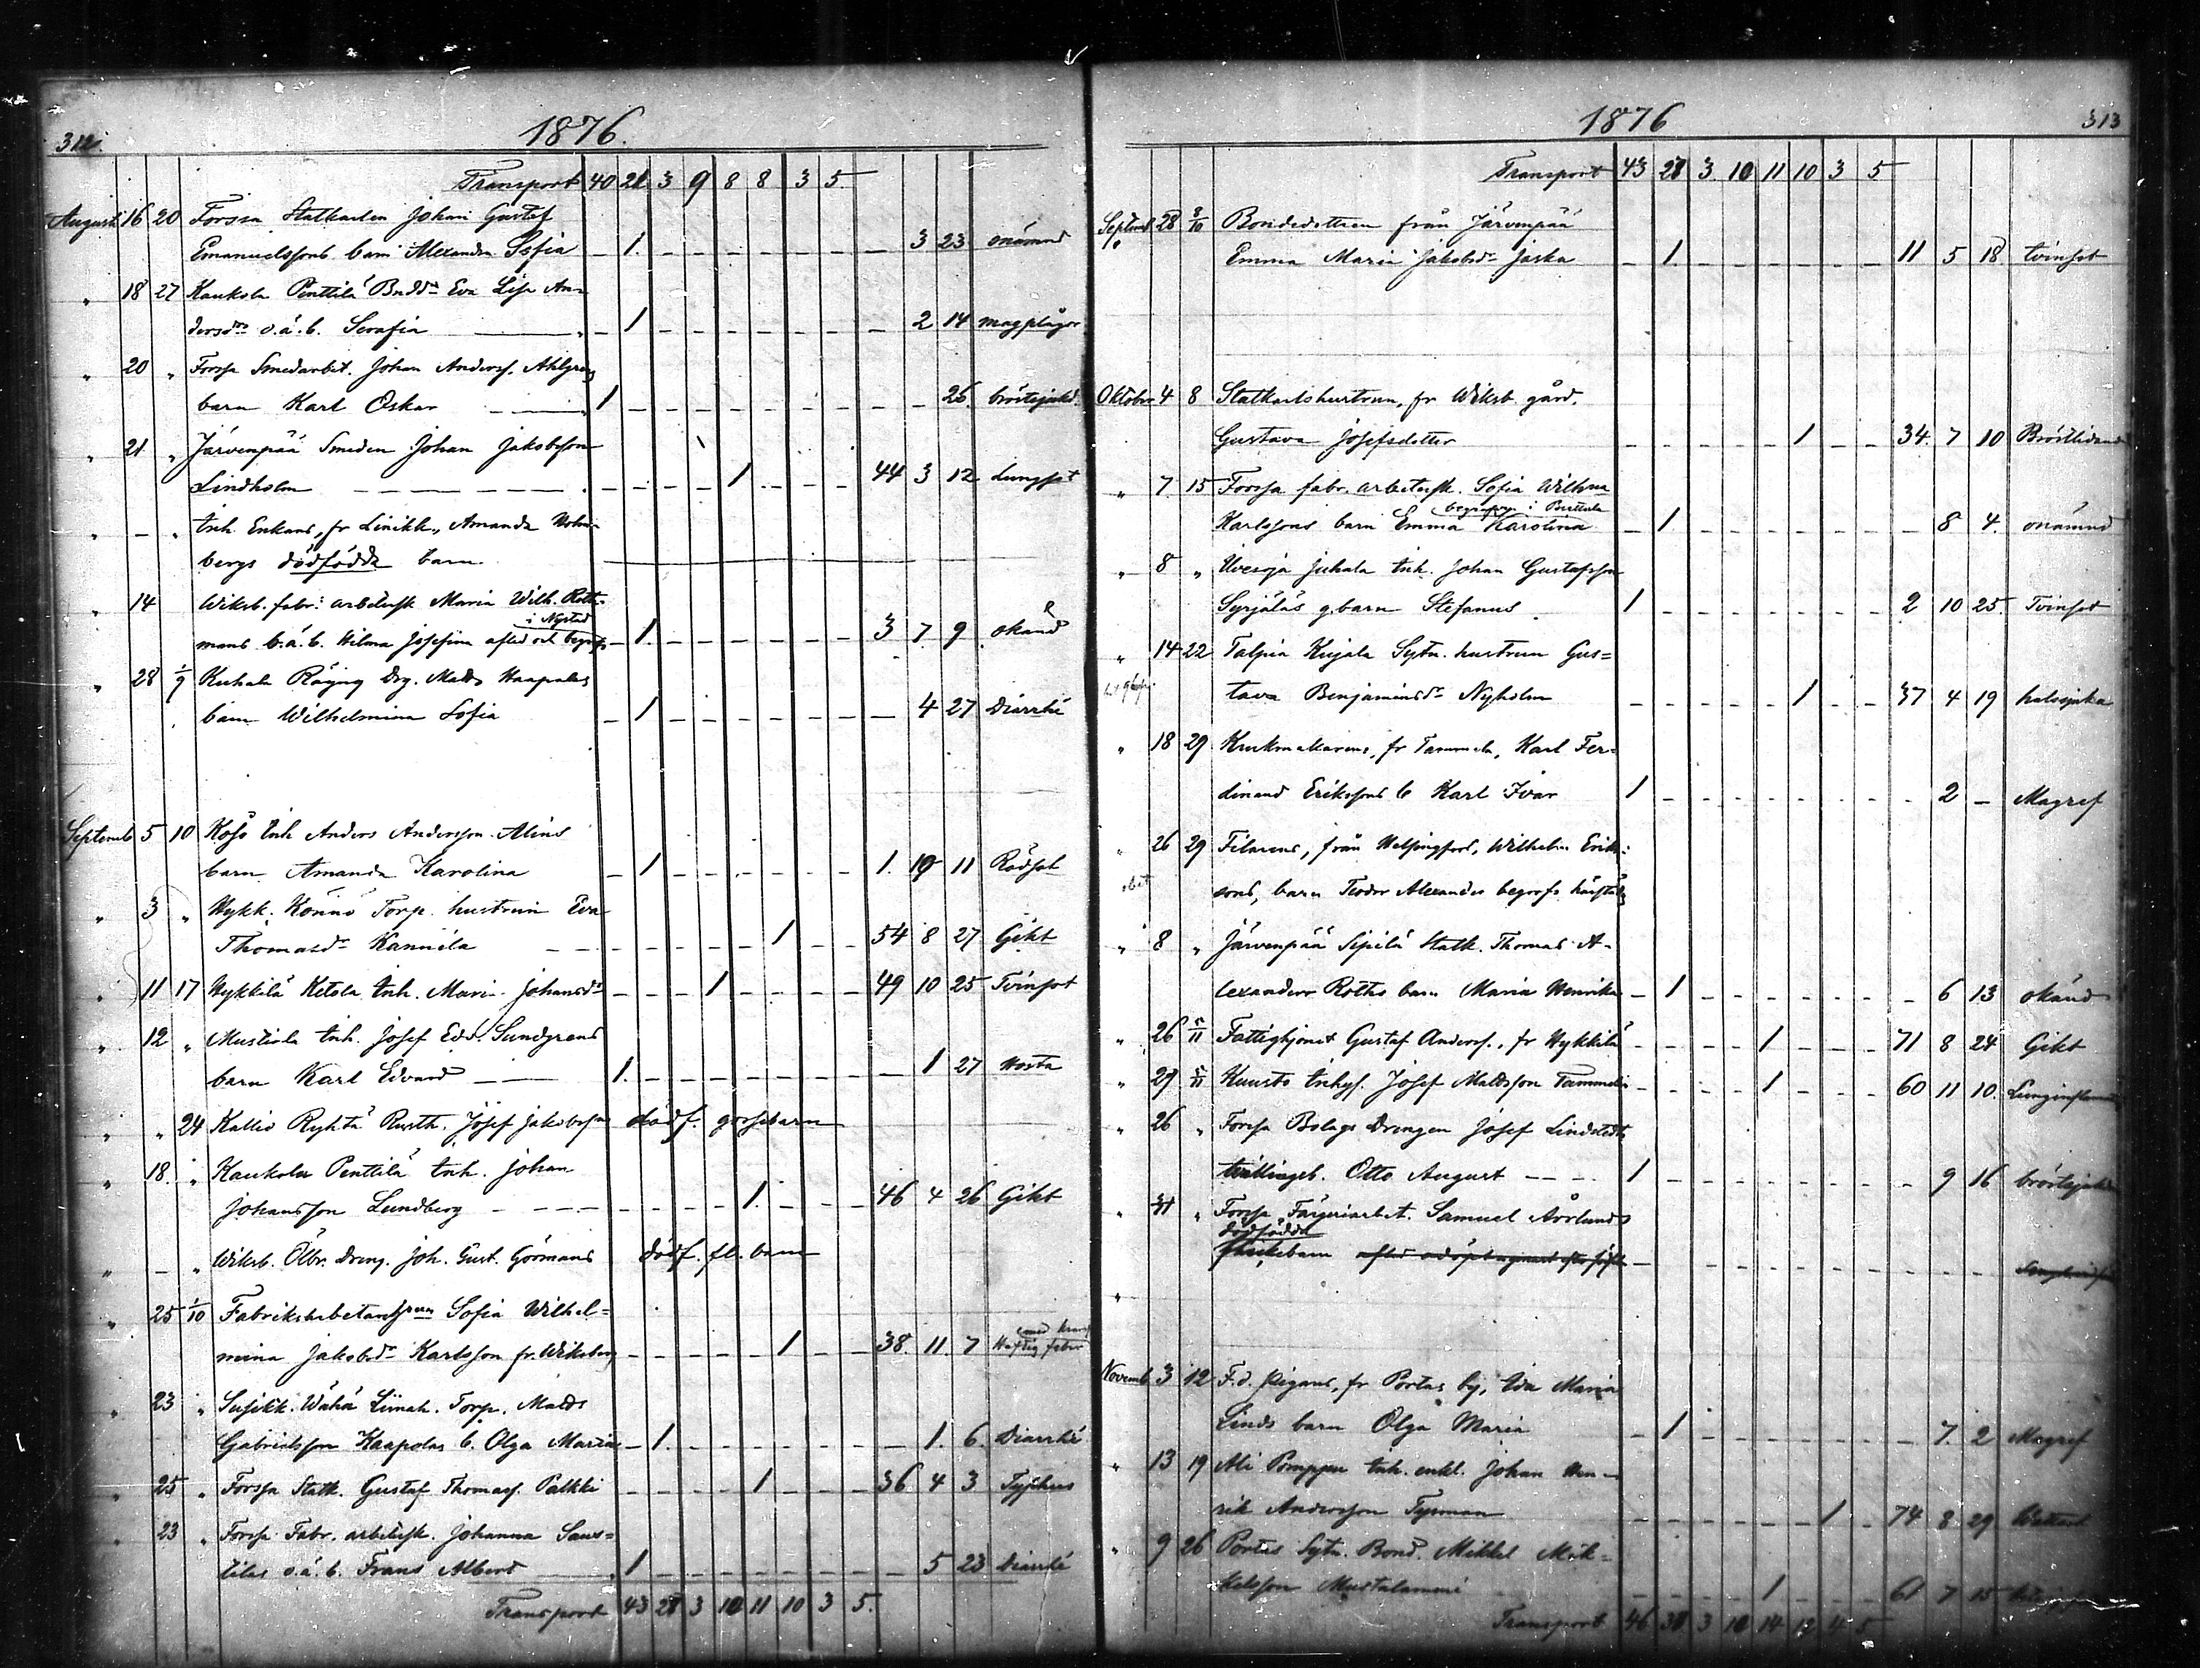 312.
1876.
Transport 40 21 3 9 8 8 3 5.
Augusti 16 20 Forssa Statkarlen Johan Gustaf
Emanuelssons barn Alexandra Sofia – 1. – – – – – – – 3 23 onämnd
" 18 27 Kaukola Penttilä Bndd:r Eva Lisa An=
dersd:rs o.ä.b. Serafia – 1 – – – – – – – 2 14 magplågor
" 20 " Forssa Smedarbet. Johan Anderss. Ahlgrens
barn Karl Oskar 1 – – – – – – – – – 26. bröstsjukd.
" 21 " Järvenpää Smeden Johan Jakobsson
Lindholm – – – – 1 – – – 44 3 12 Lungsot
" – " Inh. Enkans, fr Linikk., Amanda Holm-
bergs dödfödda barn
" 14 Wiksb. fabr: arbetersk Maria Wilh. Roth-
i Nystad
mans o.ä.b. Hilma Josefina afled och begrofs – 1. – – – – – – 3 7 9 okänd
" 28 1/9 Kuhala Räyny Drg. Matts Haapalas
barn Wilhelmina Sofia – 1 – – – – – – – 4 27 Diarrhé
Septemb 5 10 Kojo Inh Anders Andersson Alins
barn Amanda Karolina – 1 – – – – – – 1. 10 11 Rödsot
" 3 " Hykk. Könnö Torp. hustrun Eva
Thomasd:r Kannila – – – – – 1 – – 54 8 27 Gikt
" 11 17 Hykkilä Ketola Inh. Maria Johansd:r – – – 1 – – – – 49 10 25 Tvinsot
" 12 " Mustiala Inh. Josef Edv. Sundgrens
barn Karl Edvard 1. – – – – – – – – 1 27 Hosta
" " 24 Kallio Ryhtä Rusth. Josef Jakobsson dödf. gossebarn
" 18. " Kaukola Penttilä Inh. Johan
Johansson Lundberg – – – – 1. – – – 46 4 26 Gikt
" – " Wiksb. Ölbr. Dreng. Joh. Gust. Görmans dödf. fl. barn
" 25 1/10 Fabriksarbetanskan Sofia Wilhel=
mina Jakobsd:r Karlsson fr. Wiksberg – – – – – 1 – – 38. 11. 7 Häftig feber
" 23 " Susikk. Wähä Liimat. Torp. Matts
Gabrielsson Haapolas b. Olga Maria – 1. – – – – – – – 1. 6. Diarrhé
" 25 " Forssa Statk. Gustaf Thomass. Palkki – – – – 1 – – – 36 4 3 Typhus
" 23 " Forssa Fabr. arbetersk. Johanna Saus=
tilas o.ä.b. Frans Albert 1 – – – – – – – – 5 23 Diarrhé
Transport 43 28 3 10 11 10 3 5.
1876
313
Transport 43 28 3. 10 11 10 3 5
Septemb 28 8/10 Bondedottren från Järvenpää
Emma Maria Jakobsd:r Jaska – 1. – – – – – – 11 5 18 tvinsot
Oktober 4 8 Statkarlshustrun, fr Wiksb. gård,
Gustava Josefsdotter – – – – – 1 – – 34. 7 10 Bröstlidande
" 7. 15 Forssa fabr. arbetersk. Sofia Wilh:na
begrafven i Perttula
Karlssons barn Emma Karolina – 1. – – – – – – – 8 4. onämnd
" 8 " Uvesoja Juhala Inh. Johan Gustafsson
Syrjäläs g.barn Stefanus 1 – – – – – – – 2 10 25 Tvinsot
" 14 22 Talpia Kujala Sytn. hustrun Gus=
tava Benjaminsd:r Nyholm – – – – – 1 – – 37 4 19 halssjuka
" 18 29 Krukmakarens, fr Tammela, Karl Fer-
dinand Erikssons b Karl Ivar 1 – – – – – – – – 2 – Magref
" 26 29 Filarens, från Helsingfors, Wilhelm Eriks-
sons, barn Teodor Alexander begrofs härstädes
" 8 " Järvenpää Sipilä Statk. Thomas A-
lexanders Roths barn Maria Henrika – 1 – – – – – – – 6 13 okänd
" 26 5/11 Fattighjonet Gustaf Anderss., fr Hykkilä – – – – 1 – – – 71 8 24 Gikt
" 29 5/11 Kuusto Inhys. Josef Mattsson Tammelin – – – – 1 – – – 60 11 10. Lunginflamm
" 26 " Forssa Bolags Drengen Josef Lindstedts
tvillingsb. Otto August 1 – – – – – – – – 9 16 bröstsjukd
" 31 " Forssa Färgeriarbet. Samuel Åvlunds
dödfödda
flickebarn
Novemb 3 12 F.d. Pigans, fr Portas by, Ida Maria
Linds barn Olga Maria – 1 – – – – – – – 7. 2 Magref
" 13 19 Ali Pomppu Inh. enkl. Johan Hen-
rik Andersson Tyrman – – – – – – 1 – 74 8 29
" 9 26 Portas Sytn. Bond. Mikkel Mik-
kelsson Mustalammi – – – – 1 – – – 61 7 15
Transport 46 31 3 10 14 12 4 5